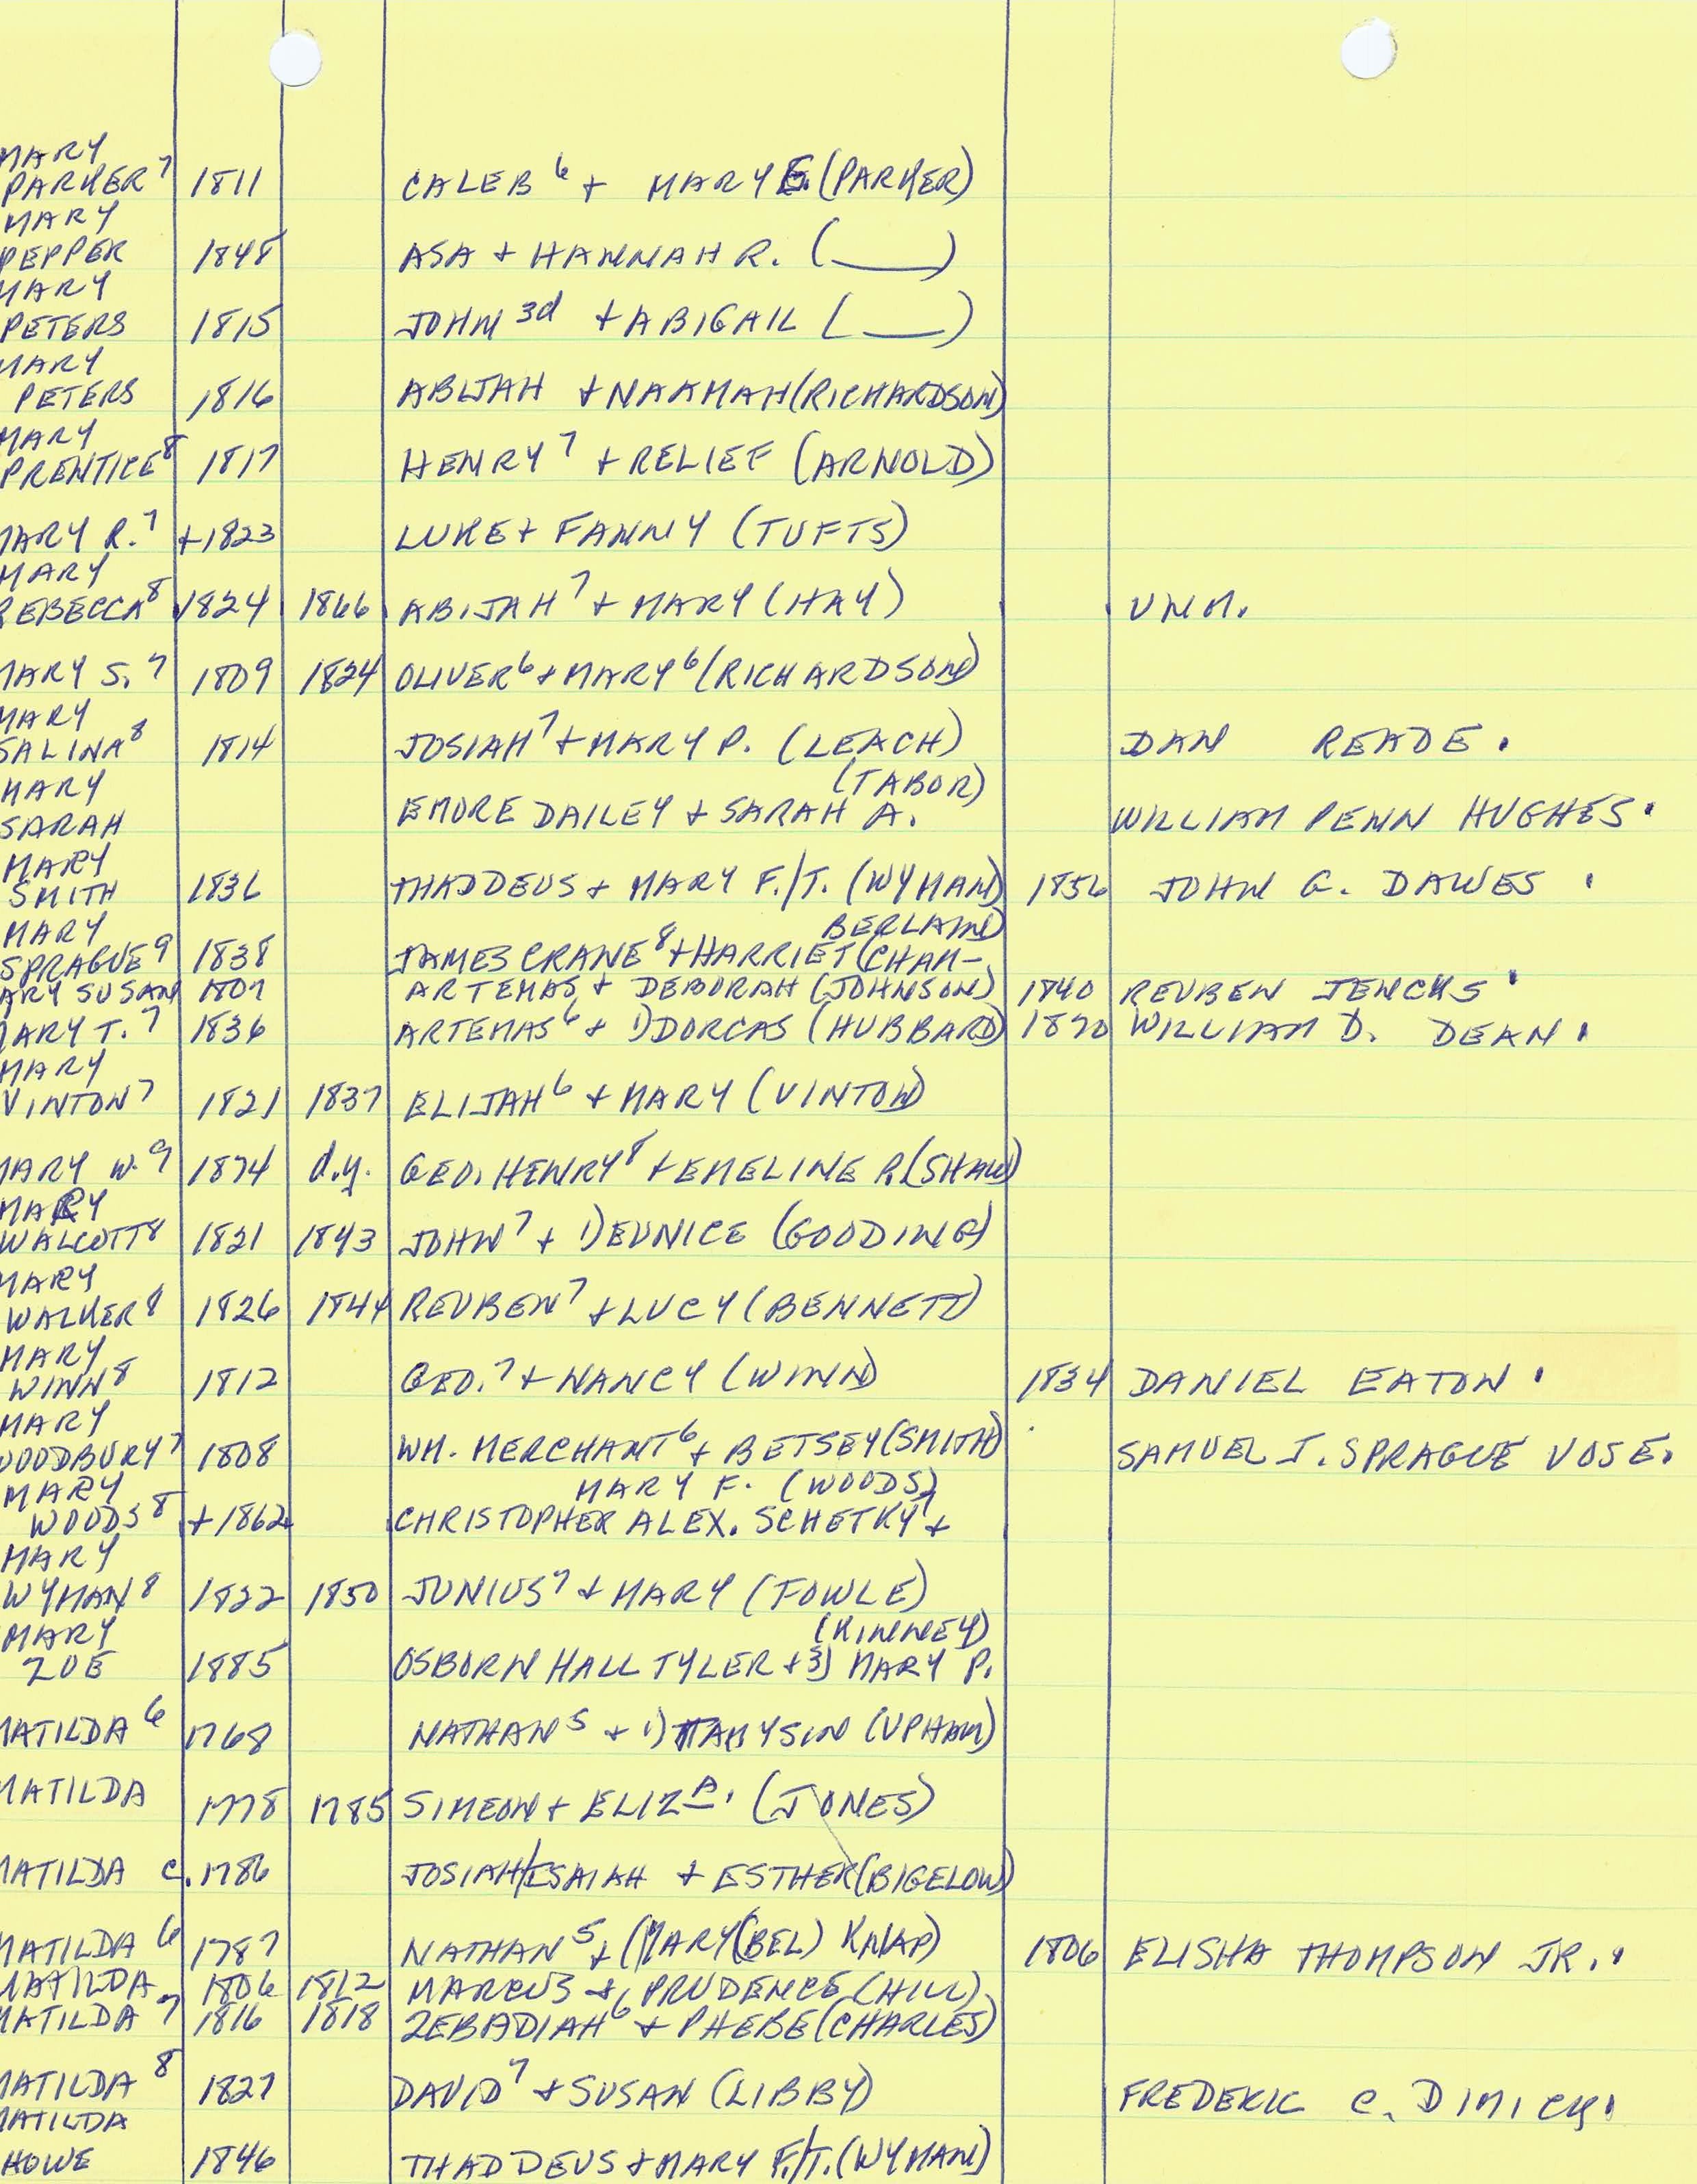 MARY
PARKER⁷ 1811 CALEB⁶ + MARY E. (PARKER)
MARY
PEPPER 1848 ASA + HANNAH R. (___)
MARY
PETERS 1815 JOHN 3d + ABIGAIL (___)
MARY
PETERS 1816 ABIJAH + NAAMAH (RICHARDSON)
MARY
PRENTICE⁸ 1817 HENRY⁷ + RELIEF (ARNOLD)
MARY R.⁷ +1823 LUKE + FANNY (TUFTS)
MARY
REBECCA⁸ 1824 1866 ABIJAH⁷ + MARY (HAY) UNM.
MARY S.⁷ 1809 1824 OLIVER⁶ + MARY⁶ (RICHARDSON)
MARY
SALINA⁸ 1814 JOSIAH⁷ + MARY P. (LEACH) DAN READE.
MARY (TABOR)
SARAH EMORE DAILEY + SARAH A. WILLIAM PENN HUGHES.
MARY
SMITH 1836 THADDEUS + MARY F./T. (WYMAN) 1856 JOHN G. DAWES.
MARY BERLAND)
SPRAGUE⁹ 1838 JAMES CRANE⁸ + HARRIET (CHAM-
MARY SUSAN 1807 ARTEMAS + DEBORAH (JOHNSON) 1840 REUBEN JENCKS.
MARY T.⁷ 1836 ARTEMAS⁶ + 1) DORCAS (HUBBARD) 1870 WILLIAM D. DEAN.
MARY
VINTON⁷ 1821 1837 ELIJAH⁶ + MARY (VINTON)
MARY W.⁹ 1874 d.y. GEO. HENRY⁸ + EMELINE P. (SHAW)
MARY
WALCOTT⁸ 1821 1843 JOHN⁷ + 1) EUNICE (GOODING)
MARY
WALKER⁸ 1826 1844 REUBEN⁷ + LUCY (BENNETT)
MARY
WINN⁸ 1812 GEO.⁷ + NANCY (WINN) 1834 DANIEL EATON.
MARY
WOODBURY⁷ 1808 WM. MERCHANT⁶ + BETSEY (SMITH) SAMUEL J. SPRAGUE VOSE.
MARY MARY F. (WOODS)
WOODS⁸ +1862 CHRISTOPHER ALEX. SCHETKY⁷ +
MARY
WYMAN⁸ 1822 1850 JUNIUS⁷ + MARY (FOWLE)
MARY (KINNEY)
ZOE 1885 OSBORN HALL TYLER + 3) MARY P.
MATILDA⁶ 1768 NATHAN⁵ + 1) TAMYSIN (UPHAM)
MATILDA 1778 1785 SIMEON + ELIZA. (JONES)
MATILDA c. 1786 JOSIAH/ISAIAH + ESTHER (BIGELOW)
MATILDA⁶ 1787 NATHAN⁵ + (MARY(BEL) KNAP) 1806 ELISHA THOMPSON JR..
MATILDA 1806 1812 MARCUS + PRUDENCE (HILL)
MATILDA⁷ 1816 1818 ZEBADIAH⁶ + PHEBE (CHARLES)
MATILDA⁸ 1827 DAVID⁷ + SUSAN (LIBBY) FREDERIC C. DIMICK.
MATILDA
HOWE 1846 THADDEUS + MARY F./T. (WYMAN)